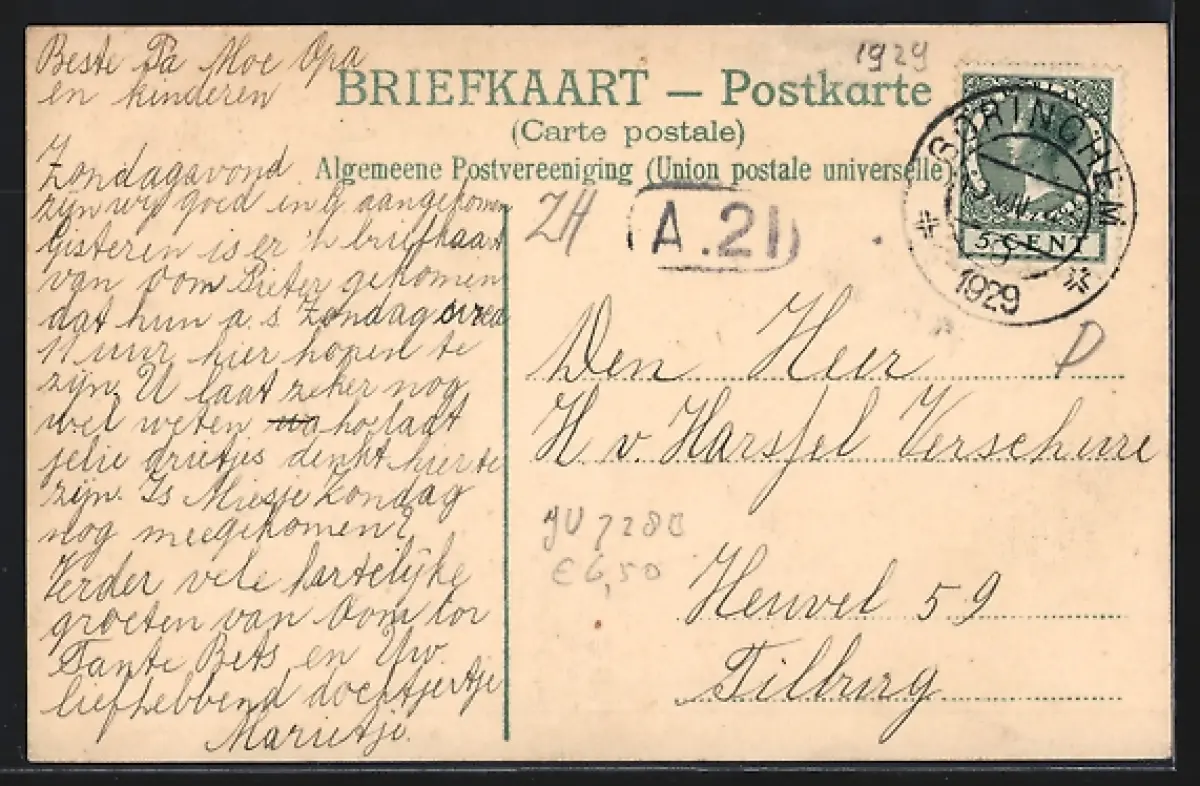 1929
BRIEFKAART — Postkarte
(Carte postale)
Algemeene Postvereeniging (Union postale universelle)
Beste Pa Moe Opa
en kinderen
Zondagavond
zijn wij goed in G aangekomen
Gisteren is er 'n briefkaart
van Oom Pieter gekomen
dat hun a.s. Zondag
11 uur hier hopen te
zijn. U laat zeker nog
wel weten hoelaat
jelie drietjes denkt hier te
zijn. Is Miesje Zondag
nog meegekomen?
Verder vele hartelijke
groeten van Oom Cor
Tante Bets en Uw
liefhebbend dochtjertje
Marietje.
ZH
A.21
GORINCHEM
1929
5 CENT
P
Den Heer
H v. Harsfel Verschure
€ 6,50
Heuvel 59
Tilburg